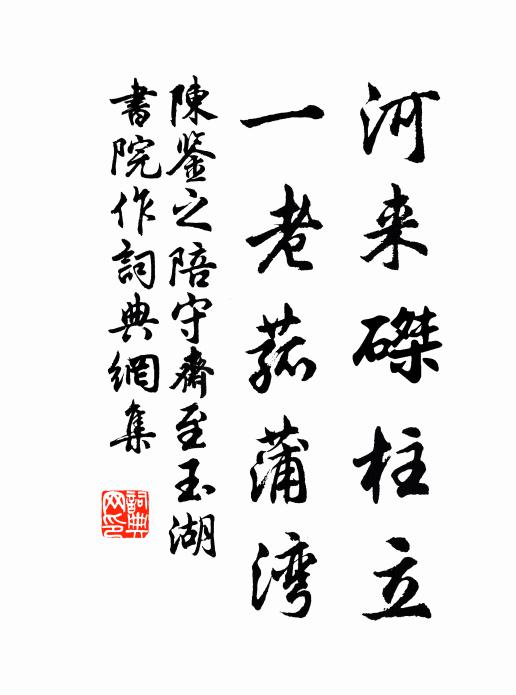 河来磔柱立
一老菰蒲湾
陳鑒之陪守齋至玉湖
書院作詞典網集
詞典网印